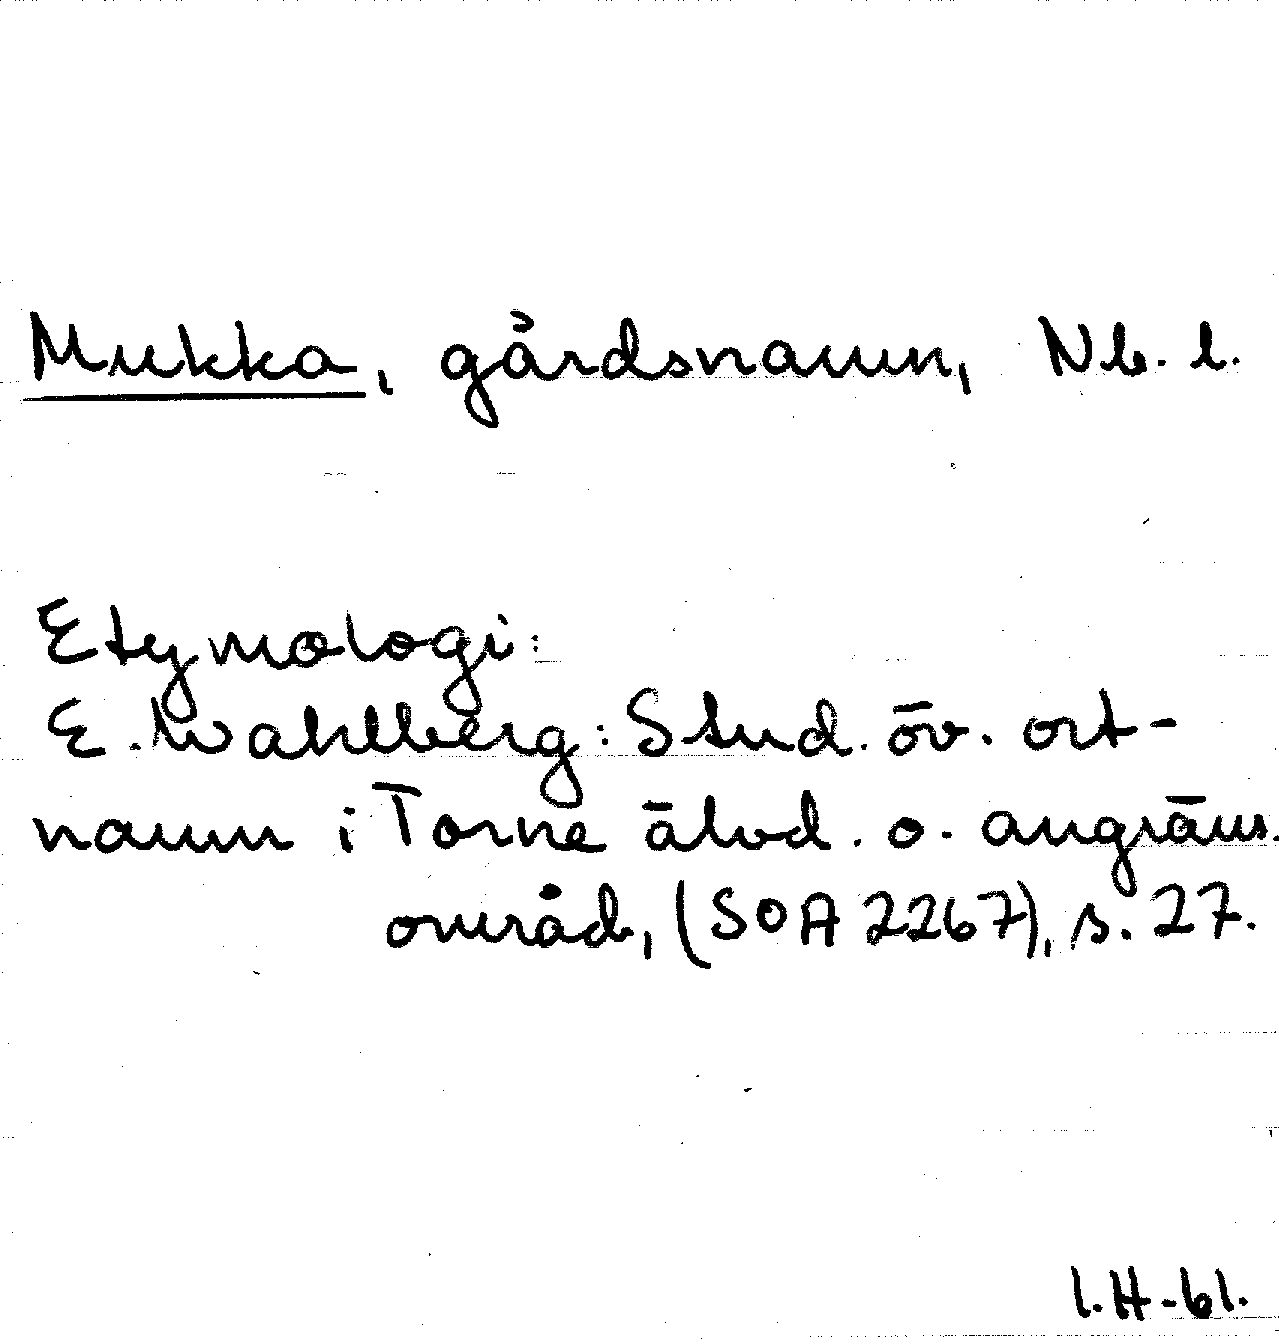 Mukka, gårdsnamn, Nb. l.
Etymologi:
E. Wahlberg: Stud. öv. ort-
namn i Torne älvd. o. angräns.
områd, (SOA 2267), s. 27.
I.H-61.